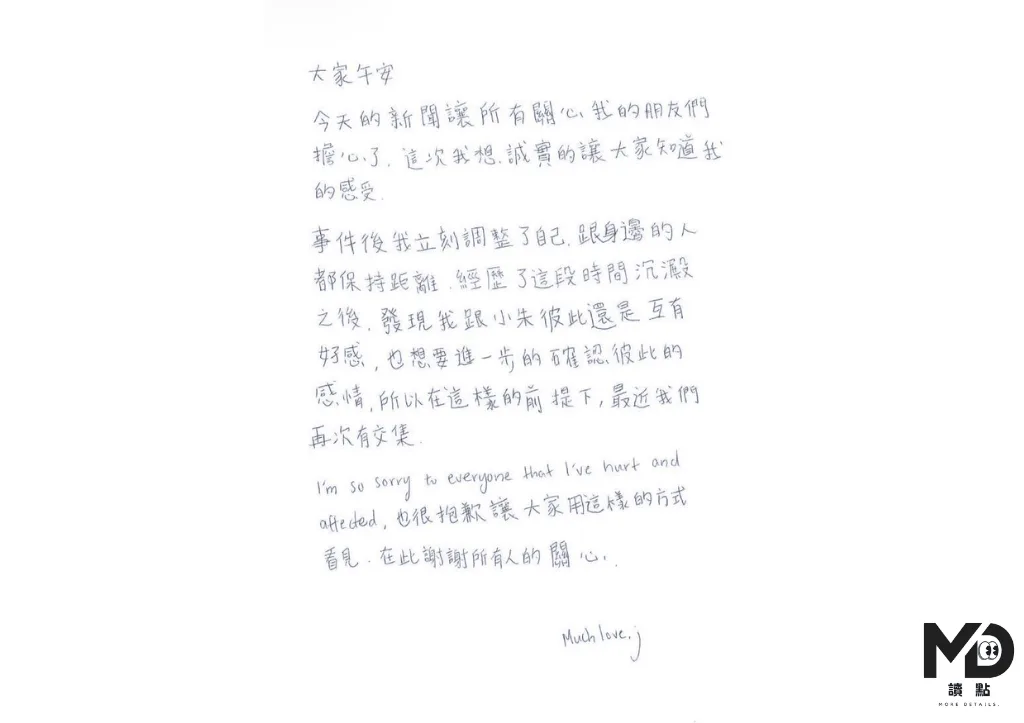 大家午安
今天的新聞讓所有關心我的朋友們
擔心了，這次我想誠實的讓大家知道我
的感受.
事件後我立刻調整了自己，跟身邊的人
都保持距離．經歷了這段時間沉澱
之後，發現我跟小朱彼此還是互有
好感，也想要進一步的確認彼此的
感情，所以在這樣的前提下，最近我們
再次有交集.
I'm so sorry to everyone that I've hurt and
affected，也很抱歉讓大家用這樣的方式
看見．在此謝謝所有人的關心.
Much love, j
MD
讀點
MORE DETAILS.